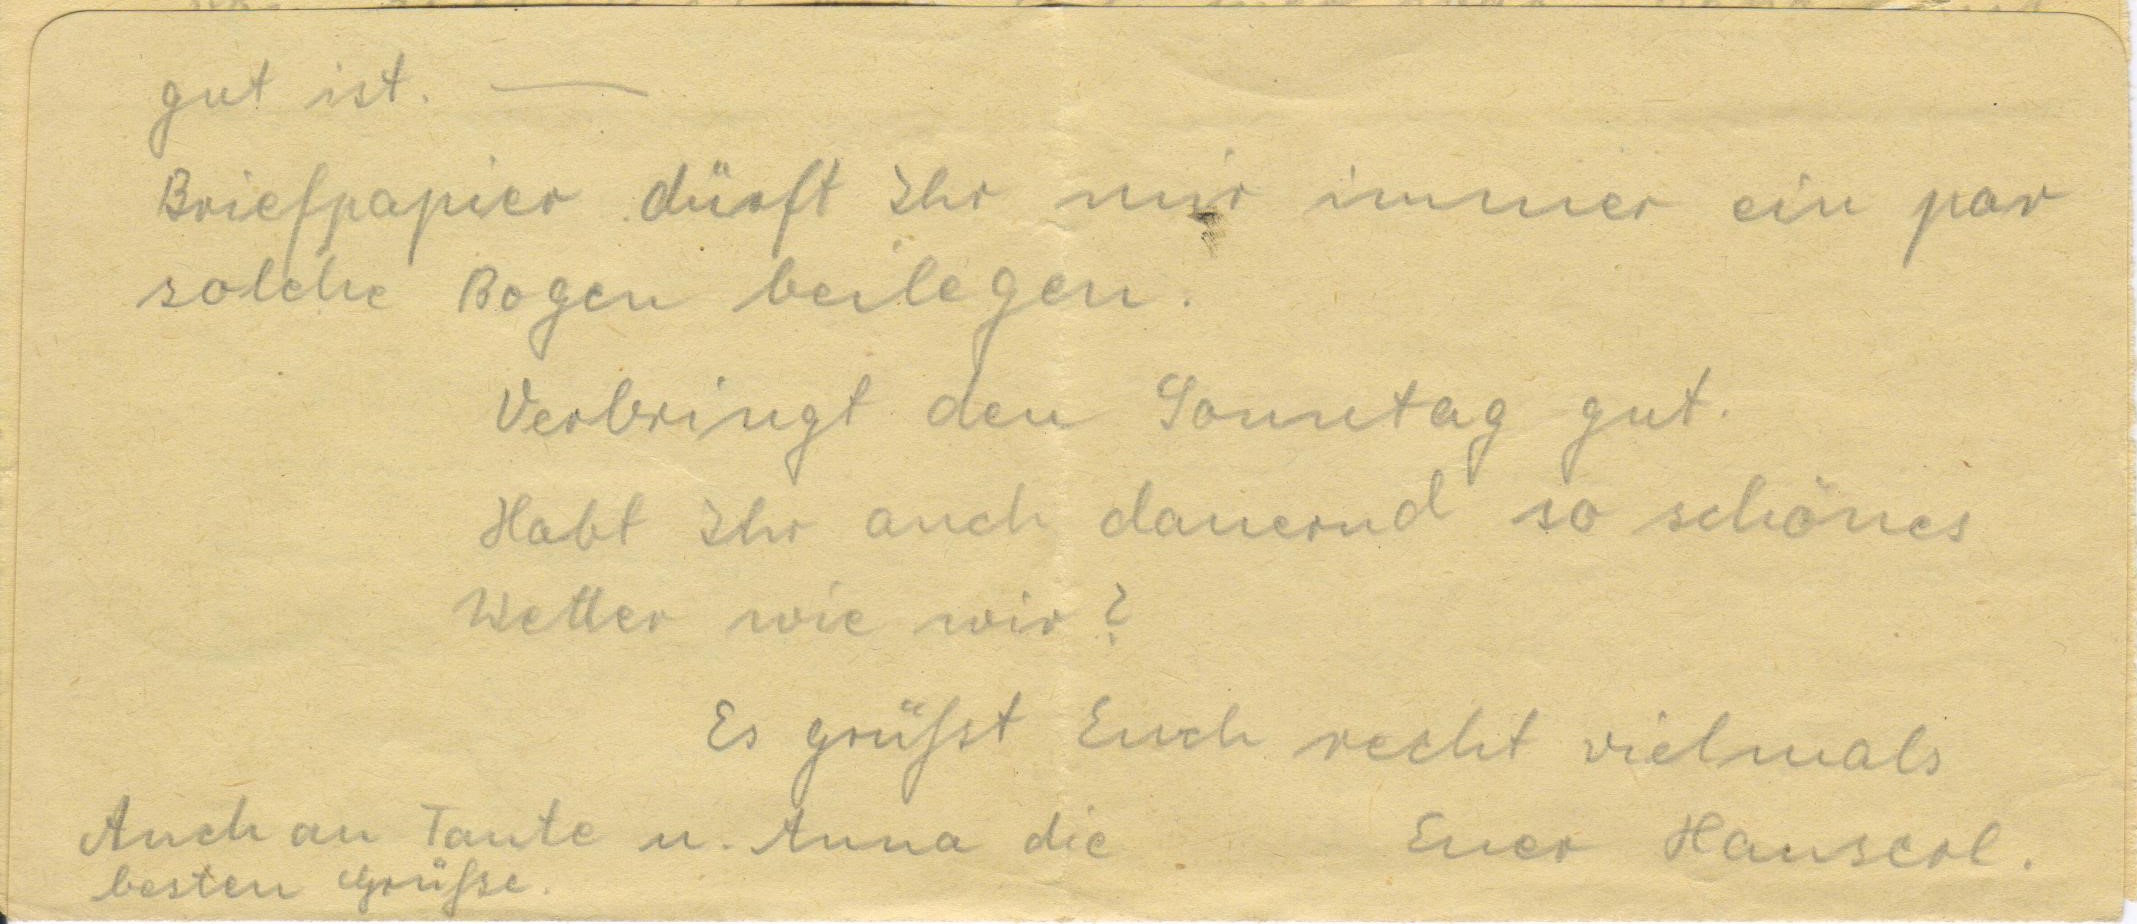 gut ist. —
Briefpapier dürft Ihr mir immer ein par
solche Bogen beilegen.
Verbringt den Sonntag gut.
Habt Ihr auch dauernd so schönes
Wetter wie wir?
Es grüßt Euch recht vielmals
Euer Hanserl.
Auch an Tante u. Anna die
besten Grüße.